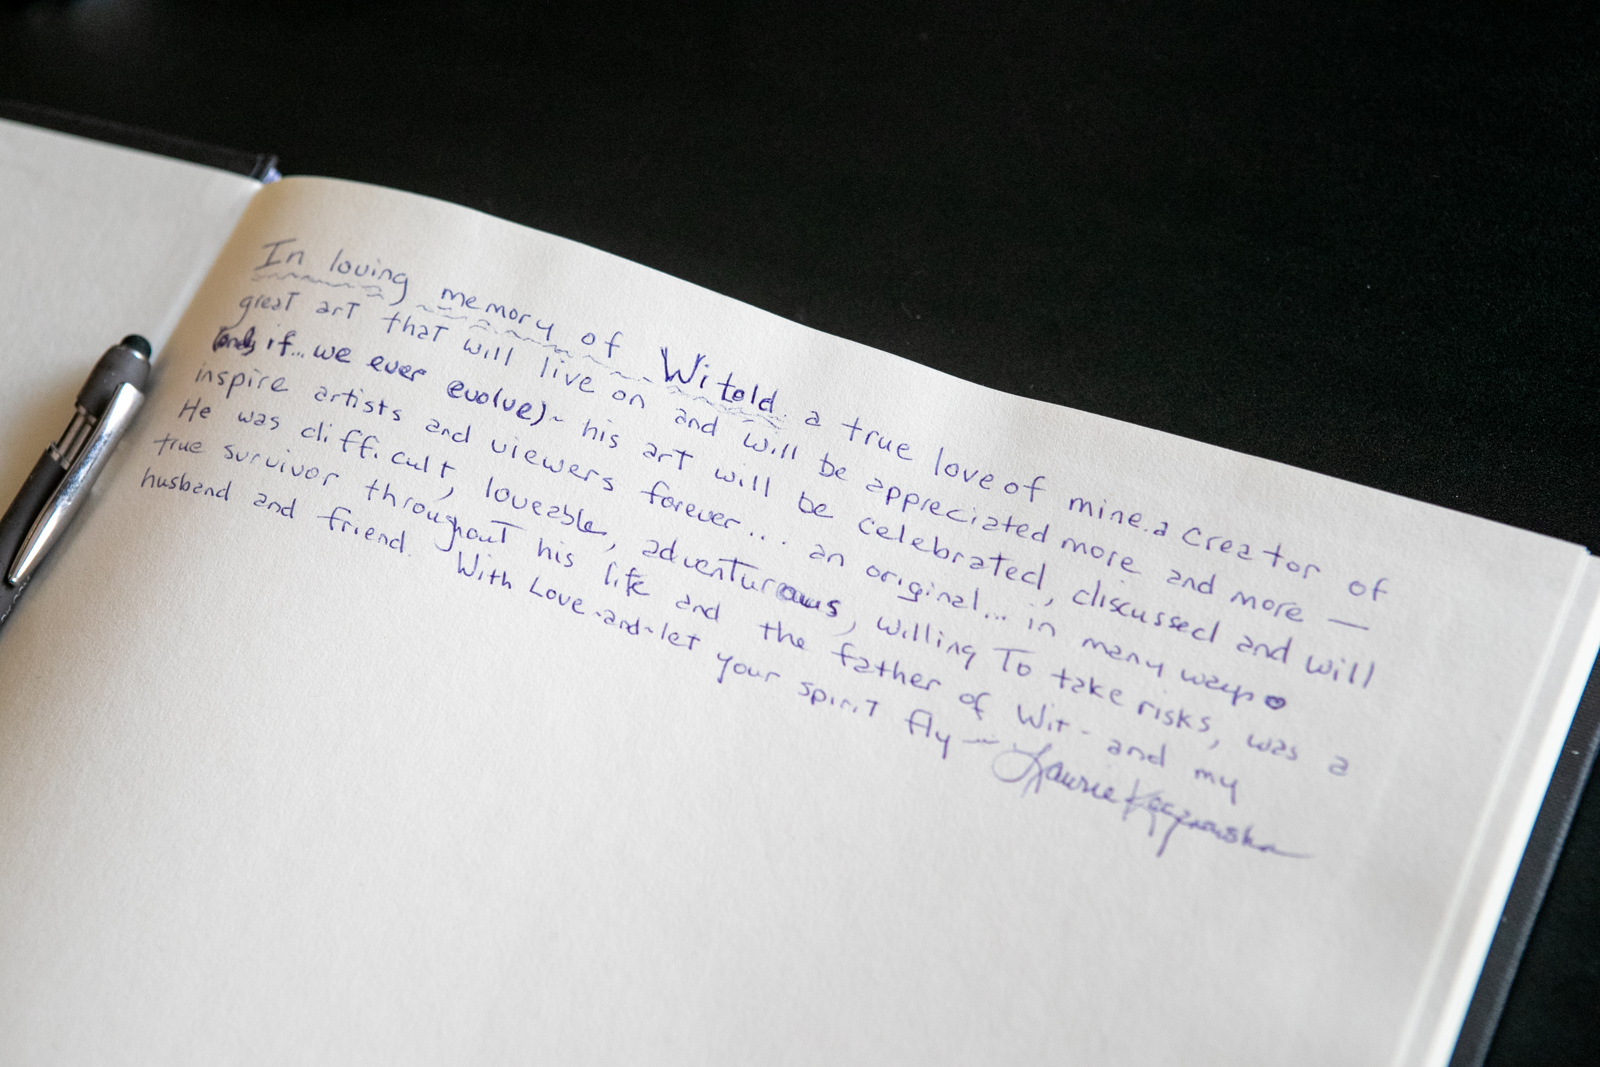 In loving memory of Witold. a true love of mine. a creator of
great art that will live on and will be appreciated more and more —
(only if... we ever evolve) ~ his art will be celebrated, discussed and will
inspire artists and viewers forever... an original... in many ways.
He was difficult, loveable, adventurous, willing to take risks, was a
true survivor throughout his life and the father of Wit - and my
husband and friend. With Love-and-let your spirit fly — Laurie Kaczanowska